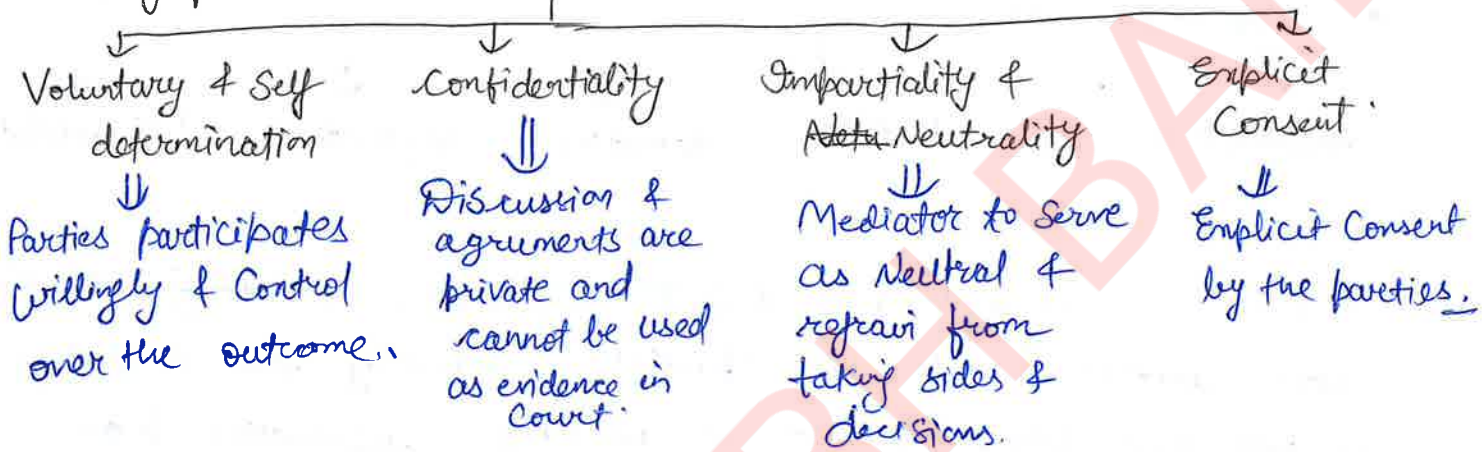 Voluntary & Self
determination
Parties participates
willingly & Control
over the outcome..
Confidentiality
Discussion &
agruments are
private and
cannot be used
as evidence in
Court.
Impartiality &
Neutrality
Mediator to Serve
as Neutral &
refrain from
taking sides &
decisions.
Explicit
Consent.
Explicit Consent
by the parties.
BH BA